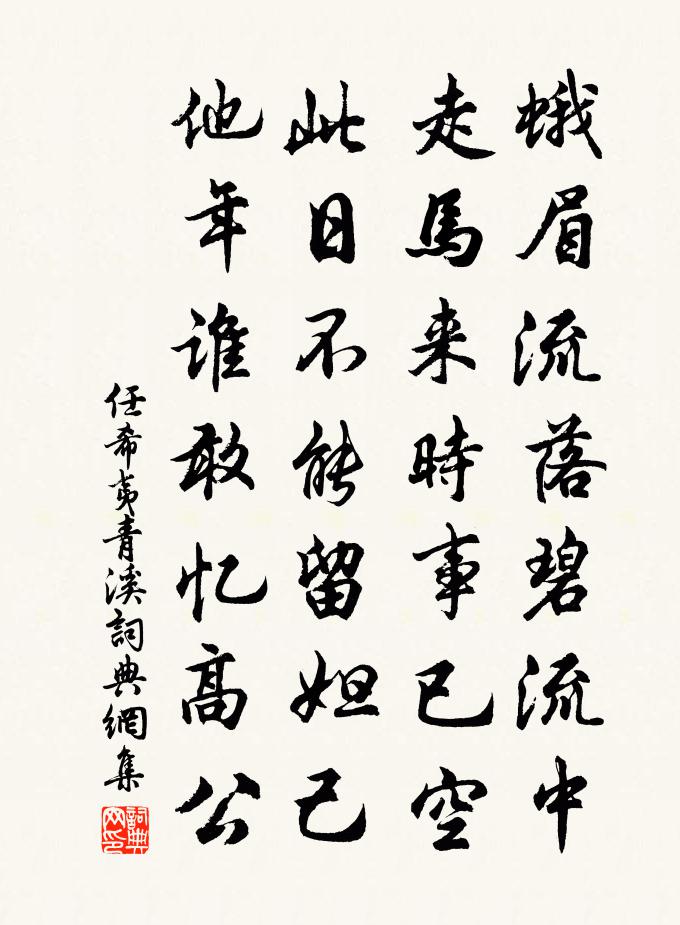 蛾眉流落碧流中
走馬来時事已空
此日不能留妲己
他年谁敢忆高公
任希夷青溪詞典網集
詞典网印